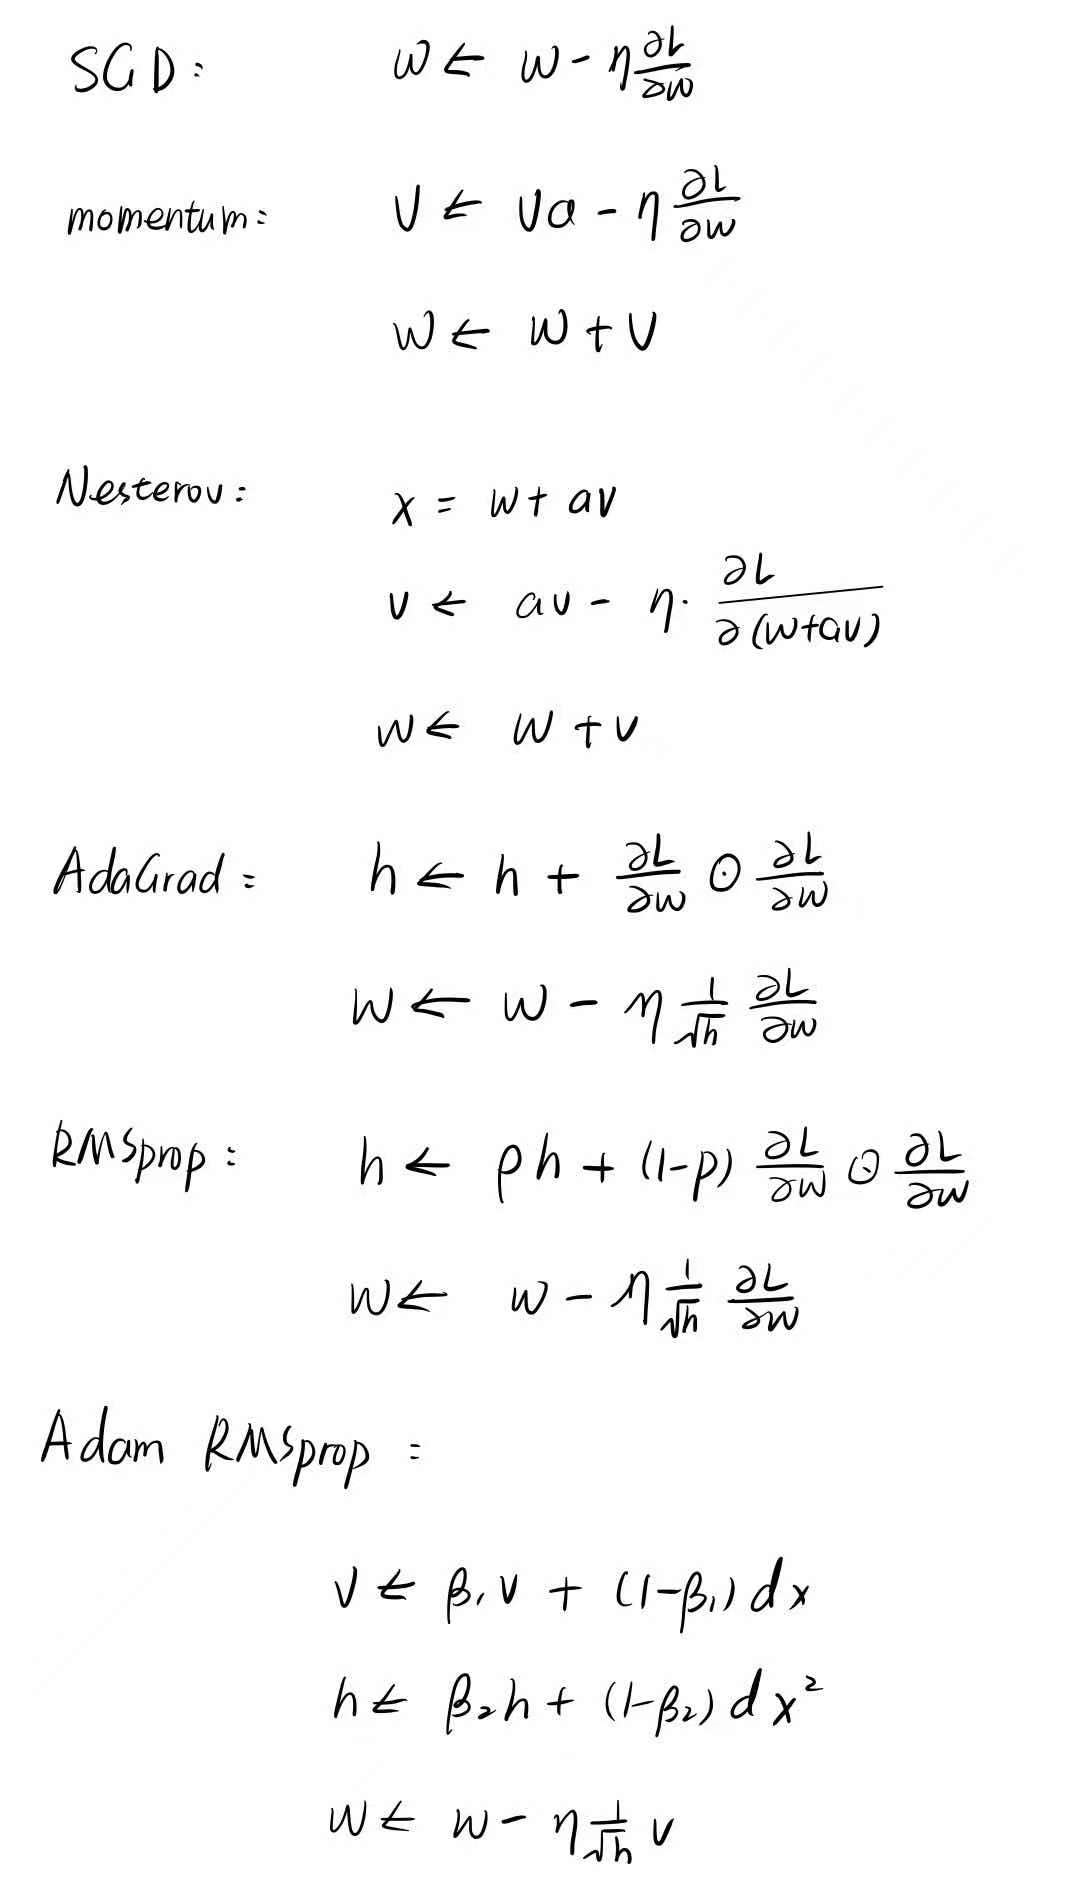 SGD: w ← w - η ∂L/∂w
momentum: v ← va - η ∂L/∂w
w ← w + v
Nesterov: x = w + av
v ← av - η · ∂L/∂(w+av)
w ← w + v
AdaGrad: h ← h + ∂L/∂w ⊙ ∂L/∂w
w ← w - η 1/√h ∂L/∂w
RMSprop: h ← ρh + (1-ρ) ∂L/∂w ⊙ ∂L/∂w
w ← w - η 1/√h ∂L/∂w
Adam RMSprop:
v ← β₁v + (1-β₁)dx
h ← β₂h + (1-β₂)dx²
w ← w - η 1/√h v